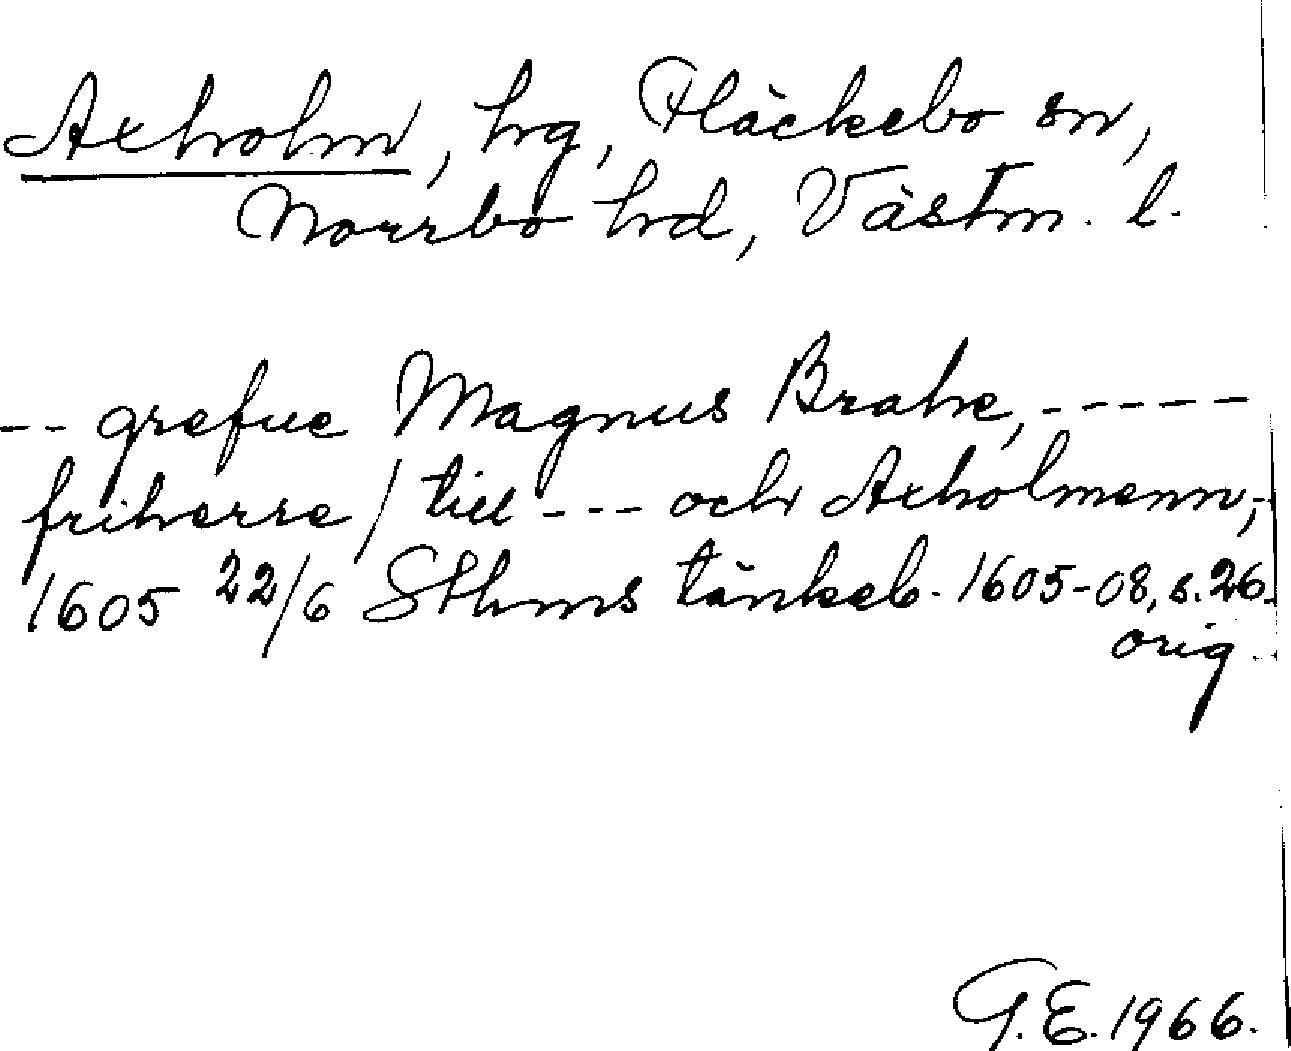 Axholm, hrg, Fläckebo sn,
Norrbo hrd, Västm. l.
-- grefue Magnus Brahe, -----
friherre / till --- och Axholmenn,-
1605 22/6 Sthms tänkeb. 1605-08, s. 26.
orig.
G.E. 1966.